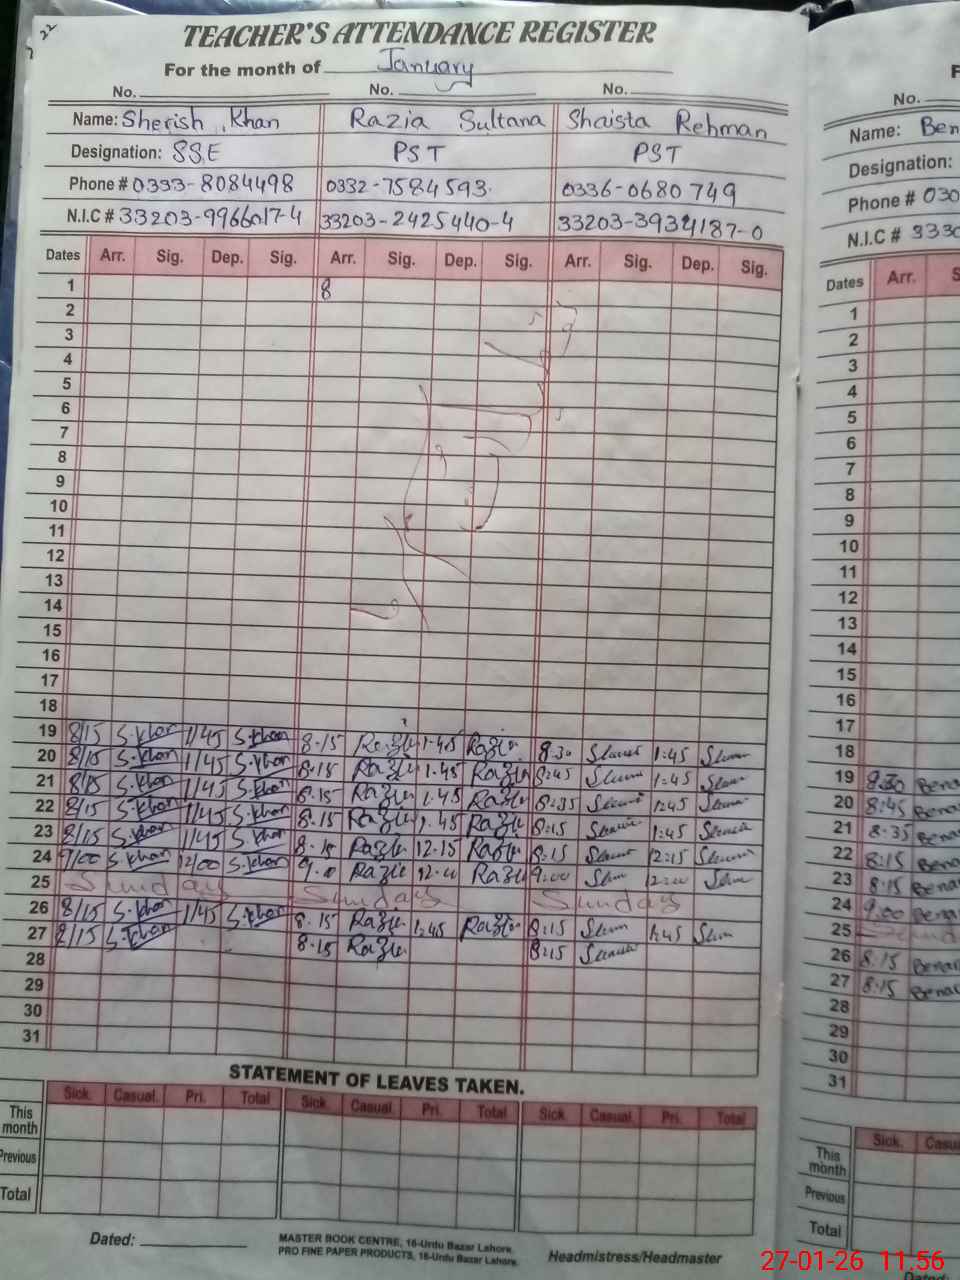 22
TEACHER'S ATTENDANCE REGISTER
For the month of January
No. No. No.
Name: Sherish Khan Razia Sultana Shaista Rehman
Designation: SSE PST PST
Phone # 0333-8084498 0332-7584593 0336-0680749
N.I.C # 33203-9966017-4 33203-2425440-4 33203-3934187-0
Dates Arr. Sig. Dep. Sig. Arr. Sig. Dep. Sig. Arr. Sig. Dep. Sig.
1 8
2
3
4
5
6
7
8
9
10
11
12
13
14
15
16
17
18
19 8/15 S.Khan 1/45 S.Khan 8.15 Razia 1.45 Razia 8.30 1:45
20 8/15 S.Khan 1/45 S.Khan 8.15 Razia 1.45 Razia 8:45 1:45
21 8/15 S.Khan 1/45 S.Khan 8.15 Razia 1.45 Razia 8:35 1:45
22 8/15 S.Khan 1/45 S.Khan 8.15 Razia 1.45 Razia 8:15 1:45
23 8/15 S.Khan 1/45 S.Khan 8.15 Razia 12.15 Razia 8:15 12:15
24 9/00 S.Khan 12/00 S.Khan 9.0 Razia Razia 9:00
25 Sunday Sunday Sunday
26 8/15 S.Khan 1/45 S.Khan 8.15 Razia 1:45 Razia 8:15 1:45
27 8/15 S.Khan 8.15 Razia 8:15
28
29
30
31
STATEMENT OF LEAVES TAKEN.
Sick. Casual. Pri. Total Sick. Casual. Pri. Total Sick. Casual. Pri. Total
This month
Previous
Total
Dated:
MASTER BOOK CENTRE, 16-Urdu Bazar Lahore.
PRO FINE PAPER PRODUCTS, 16-Urdu Bazar Lahore.
Headmistress/Headmaster
No.
Name: Ben
Designation:
Phone # 030
N.I.C # 3330
Dates Arr. S
1
2
3
4
5
6
7
8
9
10
11
12
13
14
15
16
17
18
19 8.30 Bena
20 8:45 Bena
21 8.35 Bena
22 8:15 Bena
23 8.15 Bena
24 9.00 Bena
25
26 8.15 Bena
27 8.15 Bena
28
29
30
31
Sick. Casu
This month
Previous
Total
27-01-26 11.56